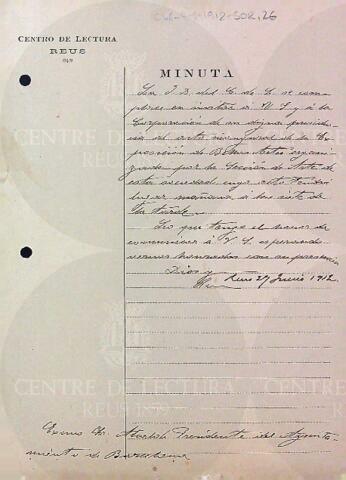 CENTRO DE LECTURA
REUS
MINUTA
La J. D. del C. de L. se com-
place en invitar á V. S. y á la
Corporación de su digna presiden-
cia al acto inaugural de la Ex-
posición de Bellas Artes organi-
zada por la Sección de Arte de
esta sociedad, cuyo acto tendrá
lugar mañana á las siete de
la tarde.
Lo que tengo el honor de
comunicar á V. S. esperando
vernos honrados con su presencia
Dios g
Reus 27 Junio 1912
Exmo Sr. Alcalde Presidente del Ayunta-
miento de Barcelona
CENTRE DE LECTURA
REUS 1859